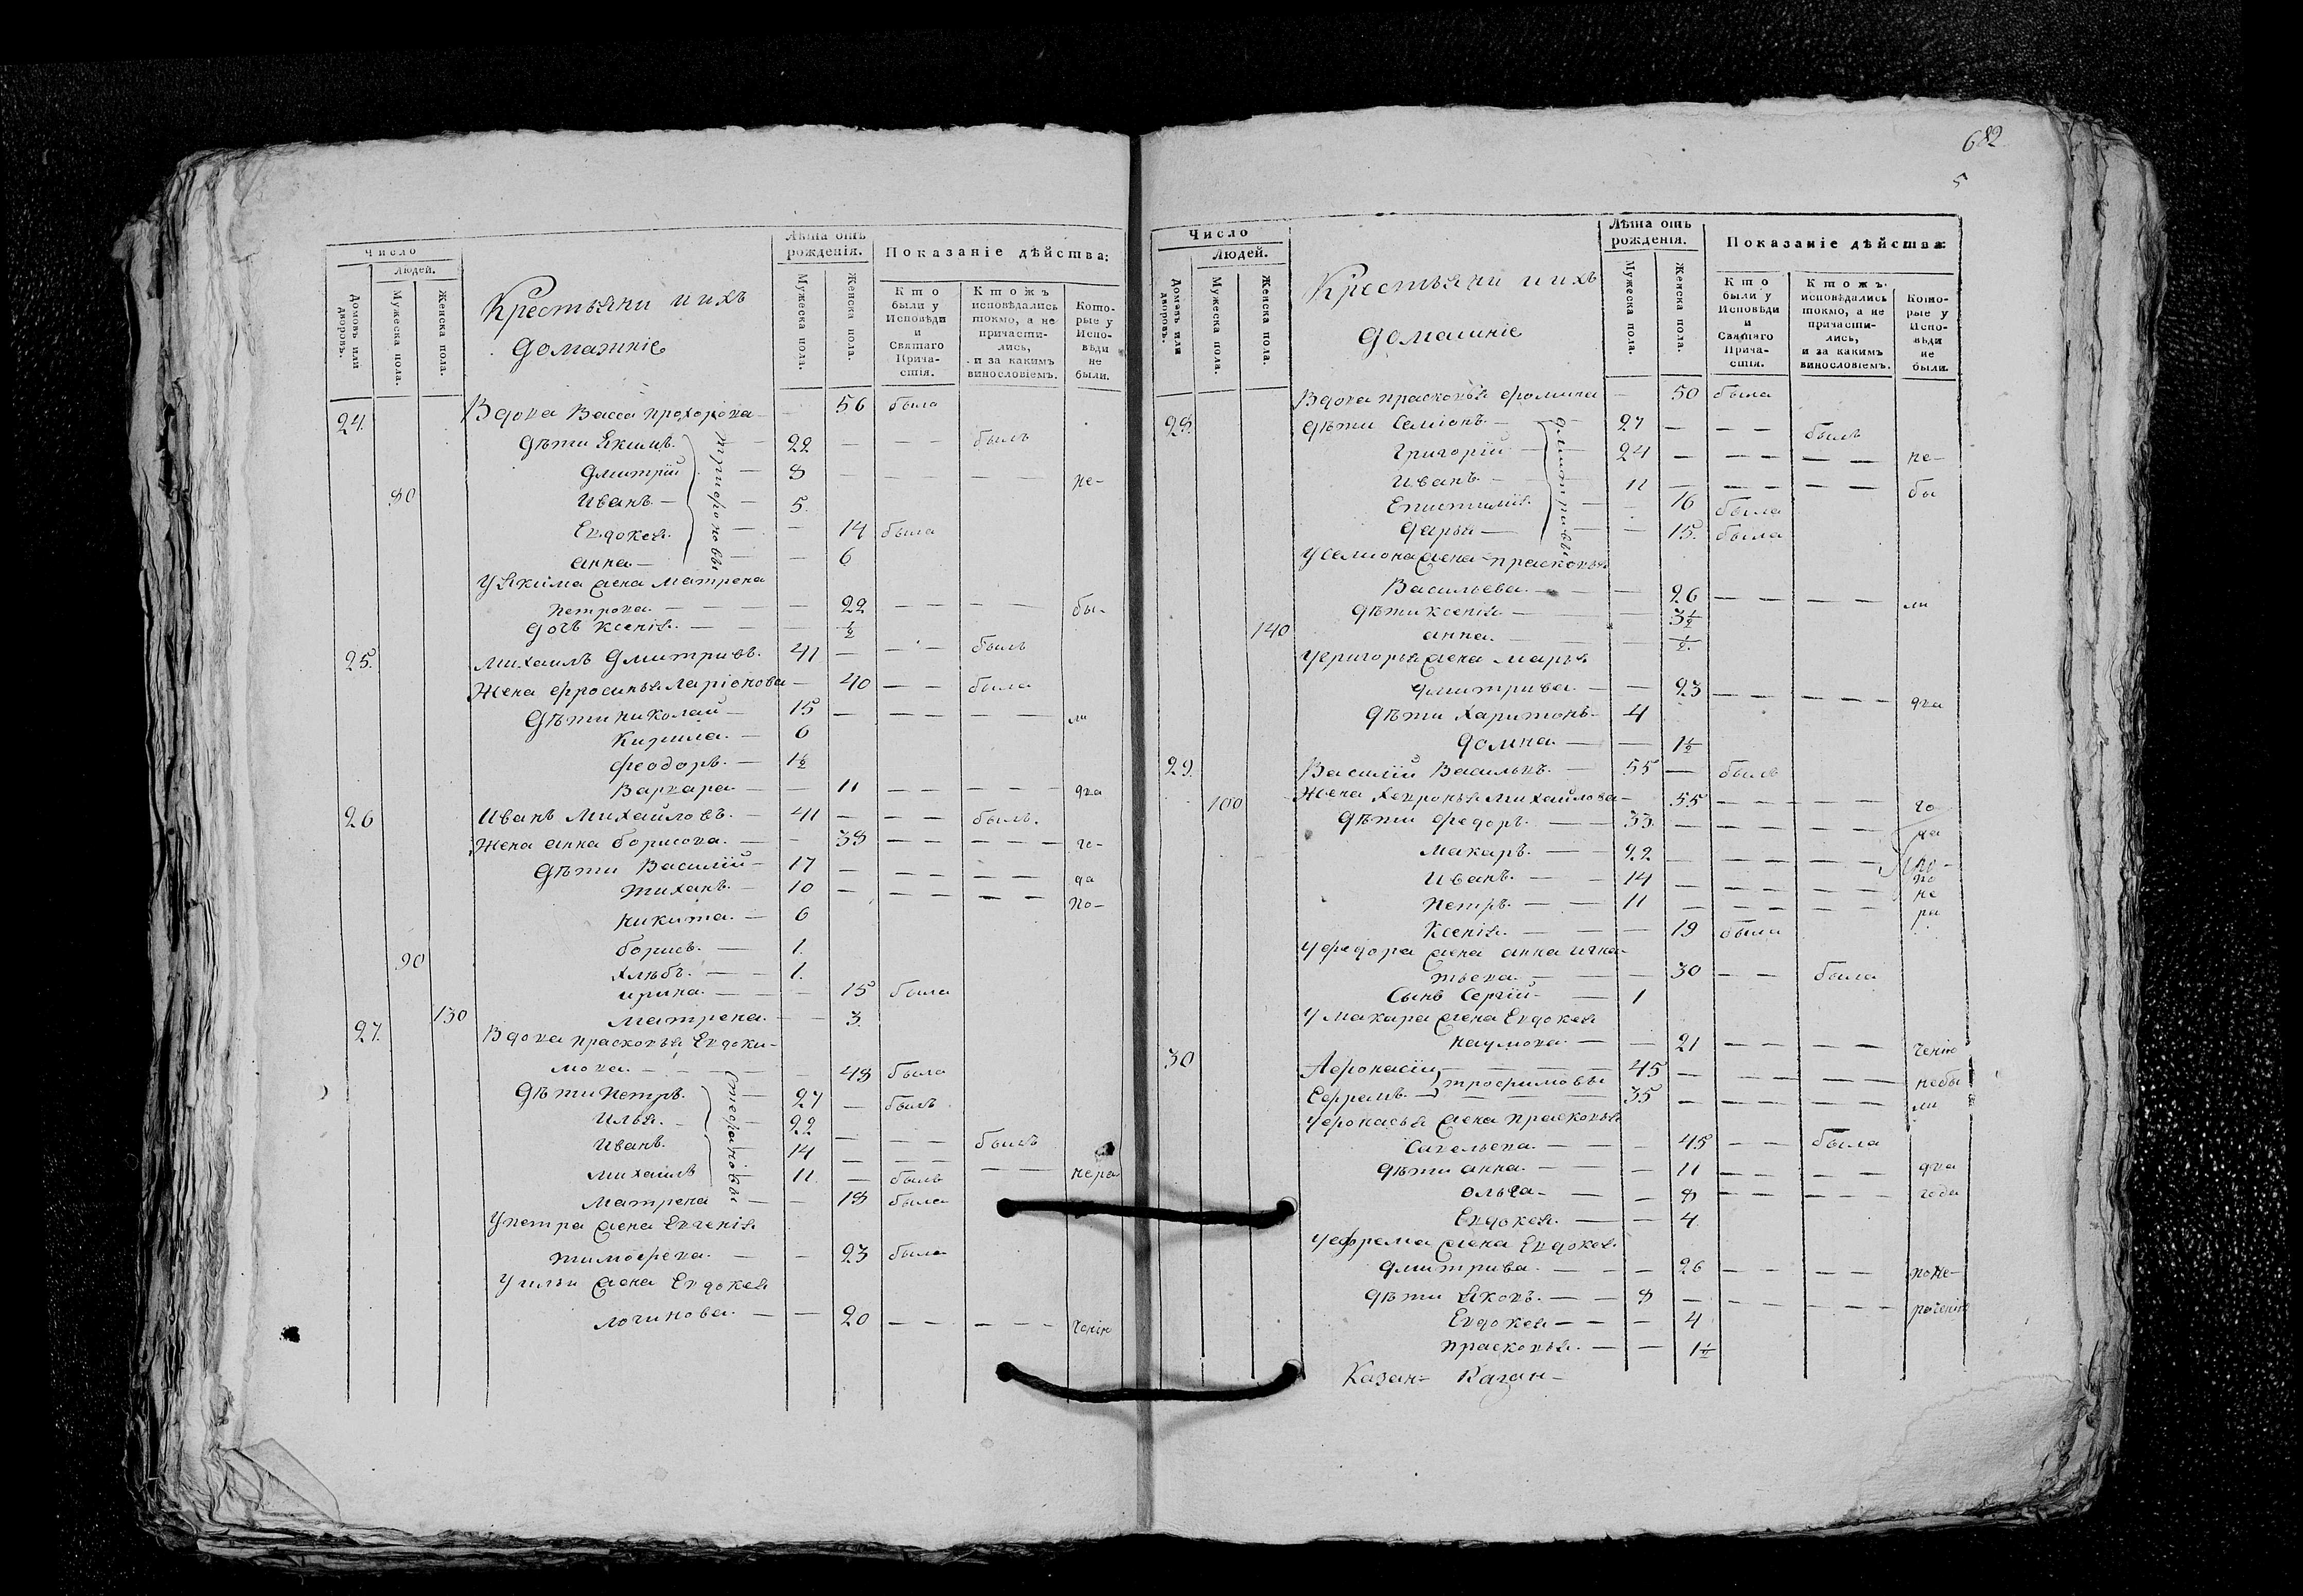 682
5
Число
Людей.
Домовъ или дворовъ.
Мужеска пола.
Женска пола.
Крестьяни и ихъ
домашніе
Лѣта отъ рожденія.
Мужеска пола.
Женска пола.
Показаніе дѣйства:
Кто были у Исповѣди и Святаго Причастія.
Ктожъ исповѣдались токмо, а не причастились, и за какимъ винословіемъ.
Которые у Исповѣди не были.
24. Вдова Васса Прохорова — 56 была
Дѣти Екимъ. Трифоновы 22 — — — былъ
Дмитрій — 8 — — — — — не-
80 Иванъ. — 5.
Евдокея — — 14 была
Анна. — — 6
У Якима жена Матрена
Петрова. — — — 22 — — — — бы-
дочь Ксенія. — — — ½
25. Михаилъ Дмитривъ. 41 — — — былъ
Жена Ефросинья Ларіонова — 40 — — была
Дѣти Николай — 15 — — — — — ли
Кирила. — 6
Феодоръ. — 1½
Варвара — — 11 — — — — — два
26 Иванъ Михайловъ. — 41 — — — былъ.
Жена Анна Борисова. — — 38 — — — — — го-
Дѣти Василій — 17 — — — — — да
Тиханъ. — 10 — — — — — по-
Никита. — 6
90 Борисъ. — 1.
Хлѣбъ. — — 1.
Ирина. — — — 15 была
130 Матрена. — — 3.
27. Вдова Прасковья Евдоки-
мова. — — — — 48 была
Дѣти Петръ. Стефановы 27 — былъ
Илья. — 22 — — — былъ
Иванъ. 14 — — —
Михаилъ 11. — былъ — — нера
Матрена — — 18 была
У Петра жена Евгенія
Тимофева. — — 23 была
У Ильи жена Евдокея
Логинова. — — 20 — — — — — ченію
Число
Людей.
Домовъ или дворовъ.
Мужеска пола.
Женска пола.
Крестьяни и ихъ
домашніе
Лѣта отъ рожденія.
Мужеска пола.
Женска пола.
Показаніе дѣйства:
Кто были у Исповѣди и Святаго Причастія.
Ктожъ исповѣдались токмо, а не причастились, и за какимъ винословіемъ.
Которые у Исповѣди не были.
Вдова Прасковья Фомина — 50 была
28. Дѣти Семіонъ. — Дмитривы 27 — — — былъ
Григорій — 24 — — — — — не-
Иванъ. — 11 — — — — — бы
Епистимія. — — 16 была
Дарья — — 15. была
У Семіона жена Прасковья
Васильева. — — 26 — — — — ли
Дѣти Ксенія. — — 3½
140 Анна. — — — ½.
У Григорья жена Марья
Дмитрива. — — 23 — — — — — два
Дѣти Харитонъ — 4
Домна. — — 1½
29. Василій Васильивъ. — 55 — былъ
100 Жена Хевронья Михайлова — 55 — — — — — го
Дѣти Федоръ. — — 33. — — — — — да
Макаръ. — — 22 — — — — —
Иванъ. — — 14 — — — — —
Петръ. — — 11 — — — — — ра
Ксенія. — — — 19 была
У Федора жена Анна Игна-
тьева. — — — 30 — — была
Сынъ Сергій — — 1
У Макара жена Евдокея
Наумова. — — 21 — — — — ченію
30 Афонасій Трофимовы 45 — — — — небы
Ефремъ. — 35 — — — — ли
У Афонасья жена Прасковья
Савельева. — — — 45 — — была
Дѣти Анна. — — — 11 — — — — два
Ольга — — — 8 — — — — — года
Евдокея. — — — 4.
У Ефрема жена Евдокея
Дмитрива. — — — 26 — — — — поне-
Дѣти Яковъ. — — 8 — — — — — — раченію
Евдокея — — — 4
Прасковья. — — 1½
Казан- Казан-